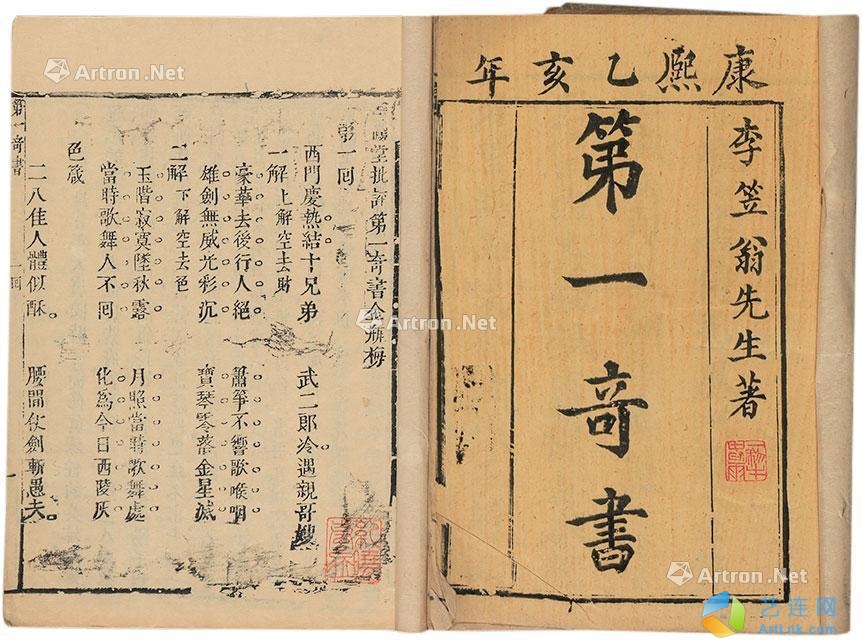 康熙乙亥年
李笠翁先生著
第一奇書
堂批評第一奇書金瓶梅
第一回
西門慶熱結十兄弟 武二郎冷遇親哥嫂
一解 上解空去財
豪華去後行人絕 簫箏不響歌喉咽
雄劍無威光彩沉 寶琴零落金星滅
二解 下解空去色
玉階寂寞墜秋露 月照當時歌舞處
當時歌舞人不回 化為今日西陵灰
色箴
二八佳人體似酥 腰間仗劍斬愚夫
第一奇書 一回
Artron.Net
Artron.Net
Artron.Net
Artron.Net
艺连网
ArtLink.com